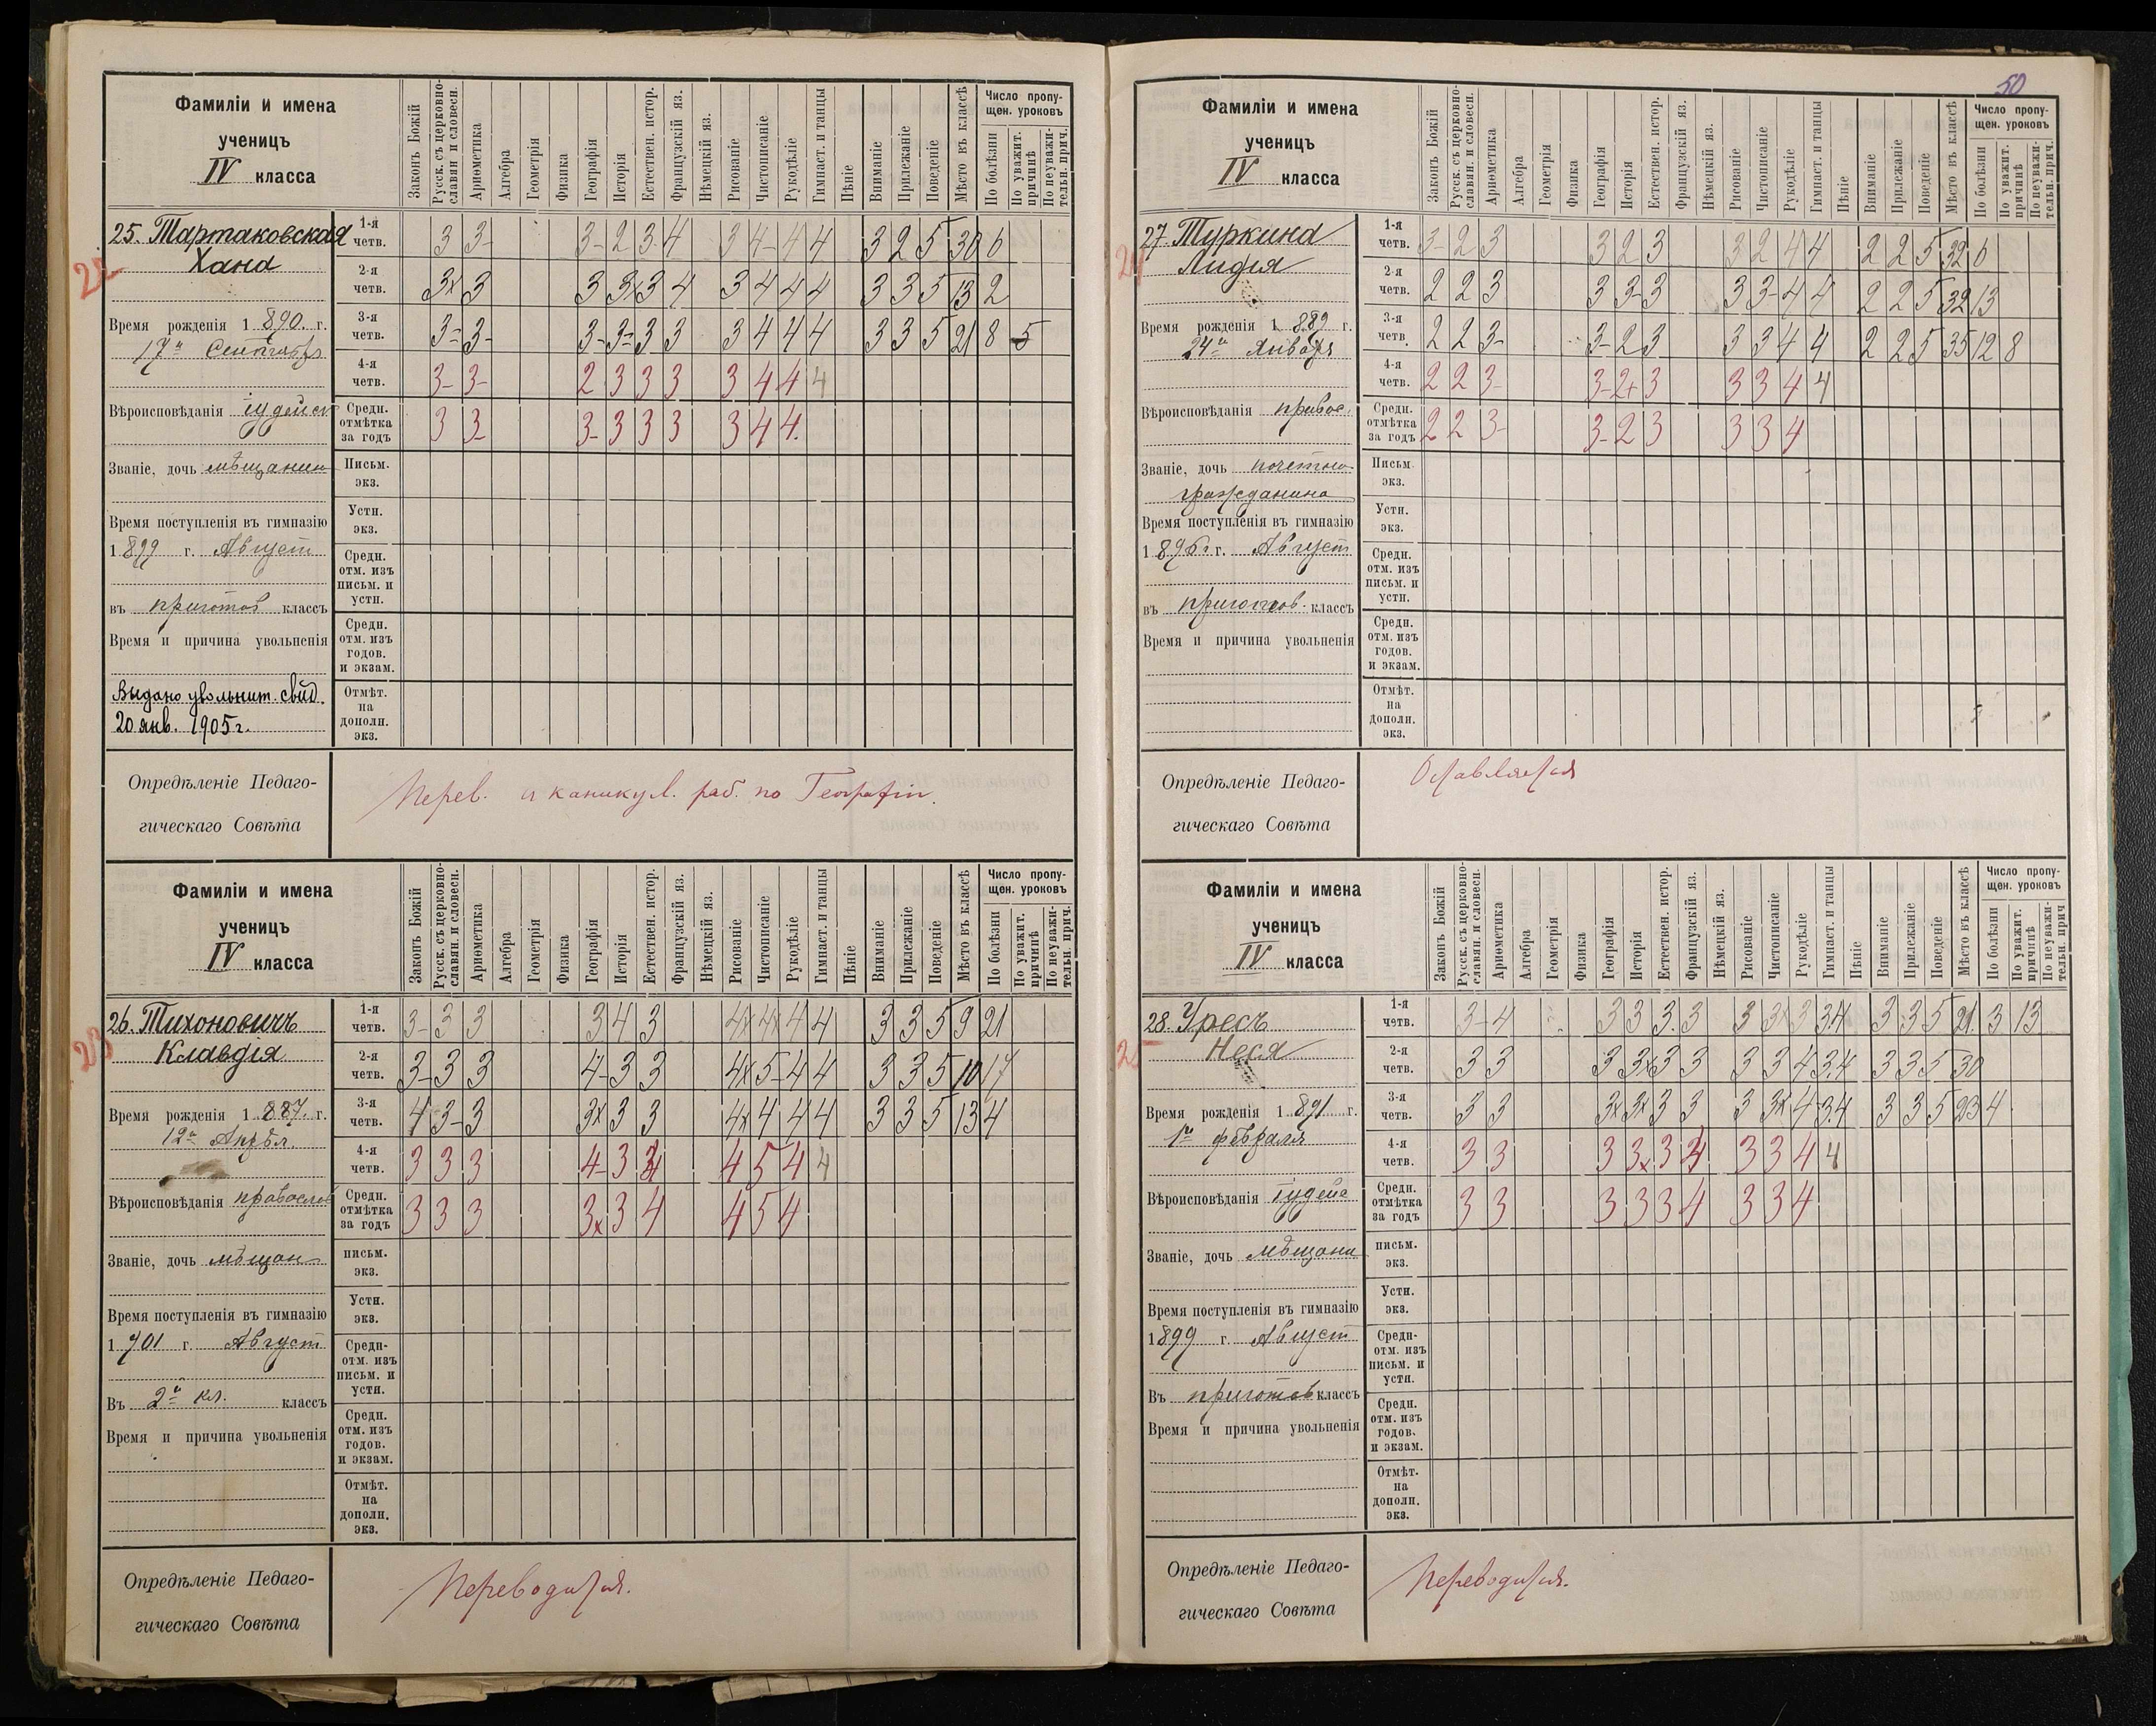 50
Фамиліи и имена
ученицъ
IV класса
Законъ Божій
Русск. съ церковно-славян. и словесн.
Ариѳметика
Алгебра
Геометрія
Физика
Географія
Исторія
Естествен. истор.
Французскій яз.
Нѣмецкій яз.
Рисованіе
Чистописаніе
Рукодѣліе
Гимнаст. и танцы
Пѣніе
Вниманіе
Прилежаніе
Поведеніе
Мѣсто въ классѣ
Число пропущен. уроковъ
По болѣзни
По уважит. причинѣ
По неуважительн. прич.
25. Тартаковская
Хана
22
Время рожденія 1890. г.
17го Сентябр
Вѣроисповѣданія іудейск
Званіе, дочь мѣщанин
Время поступленія въ гимназію
1899 г. Август
въ приготов классъ
Время и причина увольненія
Выдано увольнит. свид.
20 янв. 1905 г.
1-я четв. 3 3- 3- 2 3- 4 3 4- 4 4 3 2 5 30 6
2-я четв. 3x 3 3 3x 3 4 3 4 4 4 3 3 5 13 2
3-я четв. 3- 3- 3- 3- 3 3 3 4 4 4 3 3 5 21 8 5
4-я четв. 3- 3- 2 3 3 3 3 4 4 4
Средн. отмѣтка за годъ 3 3- 3- 3 3 3 3 4 4
Письм. экз.
Устн. экз.
Средн. отм. изъ письм. и устн.
Средн. отм. изъ годов. и экзам.
Отмѣт. на дополн. экз.
Опредѣленіе Педаго-
гическаго Совѣта
Перев. и каникул. раб. по Географіи.
Фамиліи и имена
ученицъ
IV класса
Законъ Божій
Русск. съ церковно-славян. и словесн.
Ариѳметика
Алгебра
Геометрія
Физика
Географія
Исторія
Естествен. истор.
Французскій яз.
Нѣмецкій яз.
Рисованіе
Чистописаніе
Рукодѣліе
Гимнаст. и танцы
Пѣніе
Вниманіе
Прилежаніе
Поведеніе
Мѣсто въ классѣ
Число пропущен. уроковъ
По болѣзни
По уважит. причинѣ
По неуважительн. прич.
26. Тихоновичъ
Клавдія
23
Время рожденія 1887. г.
12го Апрѣл.
Вѣроисповѣданія православ
Званіе, дочь мѣщан
Время поступленія въ гимназію
1901 г. Август
Въ 2й кл. классъ
Время и причина увольненія
1-я четв. 3- 3 3 3 4 3 4x 4x 4 4 3 3 5 9 21
2-я четв. 3- 3 3 4- 3 3 4x 5- 4 4 3 3 5 10 17
3-я четв. 4 3- 3 3x 3 3 4x 4 4 4 3 3 5 13 4
4-я четв. 3 3 3 4- 3 4 5 4 4
Средн. отмѣтка за годъ 3 3 3 3x 3 4 4 5 4
письм. экз.
Устн. экз.
Средн- отм. изъ письм. и устн.
Средн. отм. изъ годов. и экзам.
Отмѣт. на дополн. экз.
Опредѣленіе Педаго-
гическаго Совѣта
Переводится.
Фамиліи и имена
ученицъ
IV класса
Законъ Божій
Русск. съ церковно-славян. и словесн.
Ариѳметика
Алгебра
Геометрія
Физика
Географія
Исторія
Естествен. истор.
Французскій яз.
Нѣмецкій яз.
Рисованіе
Чистописаніе
Рукодѣліе
Гимнаст. и танцы
Пѣніе
Вниманіе
Прилежаніе
Поведеніе
Мѣсто въ классѣ
Число пропущен. уроковъ
По болѣзни
По уважит. причинѣ
По неуважительн. прич.
27. Туркина
Лидія
24
Время рожденія 1889 г.
24го Января
Вѣроисповѣданія правос.
Званіе, дочь почетно
гражданина
Время поступленія въ гимназію
г. Август
въ приготов. классъ
Время и причина увольненія
1-я четв. 3- 2 3 3 2 3 3 2 4 4 2 2 5 32 6
2-я четв. 2 2 3 3 3- 3 3 3- 4 4 2 2 5 32 13
3-я четв. 2 2 3- 3- 2 3 3 3 4 4 2 2 5 35 12 8
4-я четв. 2 2 3- 3- 2+ 3 3 3 4 4
Средн. отмѣтка за годъ 2 2 3- 3- 2 3 3 3 4
Письм. экз.
Устн. экз.
Средн. отм. изъ письм. и устн.
Средн. отм. изъ годов. и экзам.
Отмѣт. на дополн. экз.
Опредѣленіе Педаго-
гическаго Совѣта
Оставляется
Фамиліи и имена
ученицъ
IV класса
Законъ Божій
Русск. съ церковно-славян. и словесн.
Ариѳметика
Алгебра
Геометрія
Физика
Географія
Исторія
Естествен. истор.
Французскій яз.
Нѣмецкій яз.
Рисованіе
Чистописаніе
Рукодѣліе
Гимнаст. и танцы
Пѣніе
Вниманіе
Прилежаніе
Поведеніе
Мѣсто въ классѣ
Число пропущен. уроковъ
По болѣзни
По уважит. причинѣ
По неуважительн. прич
28. Уресъ
Неся
25
Время рожденія 1891 г.
1го февраля
Вѣроисповѣданія іудейс
Званіе, дочь мѣщани
Время поступленія въ гимназію
1899 г. Август
Въ приготов классъ
Время и причина увольненія
1-я четв. 3- 4 3 3 3 3 3 3x 3 3.4 3 3 5 21. 3 13
2-я четв. 3 3 3 3x 3 3 3 3 4 3.4 3 3 5 30
3-я четв. 3 3 3x 3x 3 3 3 3x 4 3.4 3 3 5 23 4
4-я четв. 3 3 3 3x 3 4 3 3 4 4
Средн. отмѣтка за годъ 3 3 3 3 3 4 3 3 4
письм. экз.
Устн. экз.
Средн- отм. изъ письм. и устн.
Средн. отм. изъ годов. и экзам.
Отмѣт. на дополн. экз.
Опредѣленіе Педаго-
гическаго Совѣта
Переводится.